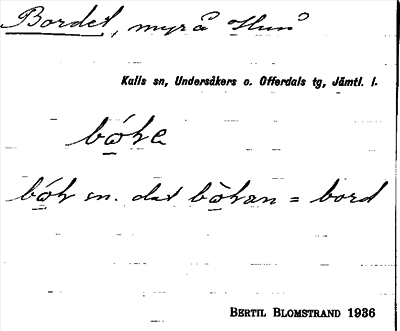 Bordet, myr å Huså
Kalls sn, Undersåkers o. Offerdals tg, Jämtl. l.
bó̱ʜe
bó̱ʜ sn. dat bò̱ʜan = bord
BERTIL BLOMSTRAND 1936